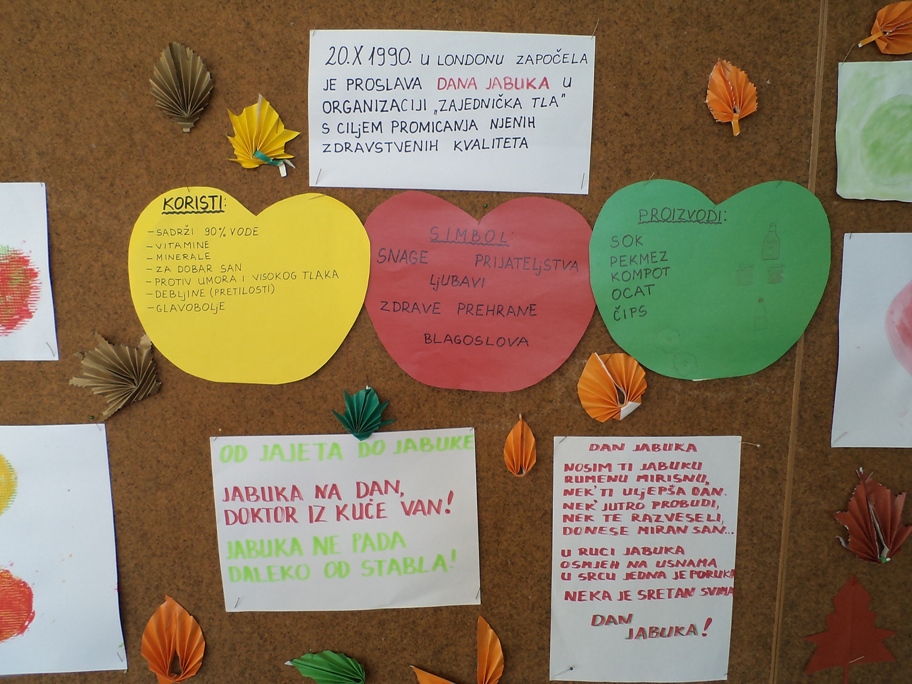 20.X 1990. U LONDONU ZAPOČELA
JE PROSLAVA DANA JABUKA U
ORGANIZACIJI „ZAJEDNIČKA TLA"
S CILjEM PROMICANJA NJENIH
ZDRAVSTVENIH KVALITETA
KORISTI:
-SADRŽI 90% VODE
-VITAMINE
-MINERALE
-ZA DOBAR SAN
-PROTIV UMORA I VISOKOG TLAKA
-DEBLjINE (PRETILOSTI)
-GLAVOBOLJE
SIMBOL:
SNAGE PRIJATELjSTVA
LjUBAVI
ZDRAVE PREHRANE
BLAGOSLOVA
PROIZVODI:
SOK
PEKMEZ
KOMPOT
OCAT
ČIPS
OD JAJETA DO JABUKE
JABUKA NA DAN,
DOKTOR IZ KUĆE VAN!
JABUKA NE PADA
DALEKO OD STABLA!
DAN JABUKA
NOSIM TI JABUKU
RUMENU MIRISNU,
NEK' TI ULjEPŠA DAN.
NEK' JUTRO PROBUDI,
NEK TE RAZVESELI,
DONESE MIRAN SAN...
U RUCI JABUKA
OSMJEH NA USNAMA
U SRCU JEDNA JE PORUKA
NEKA JE SRETAN SVIMA
DAN
JABUKA!